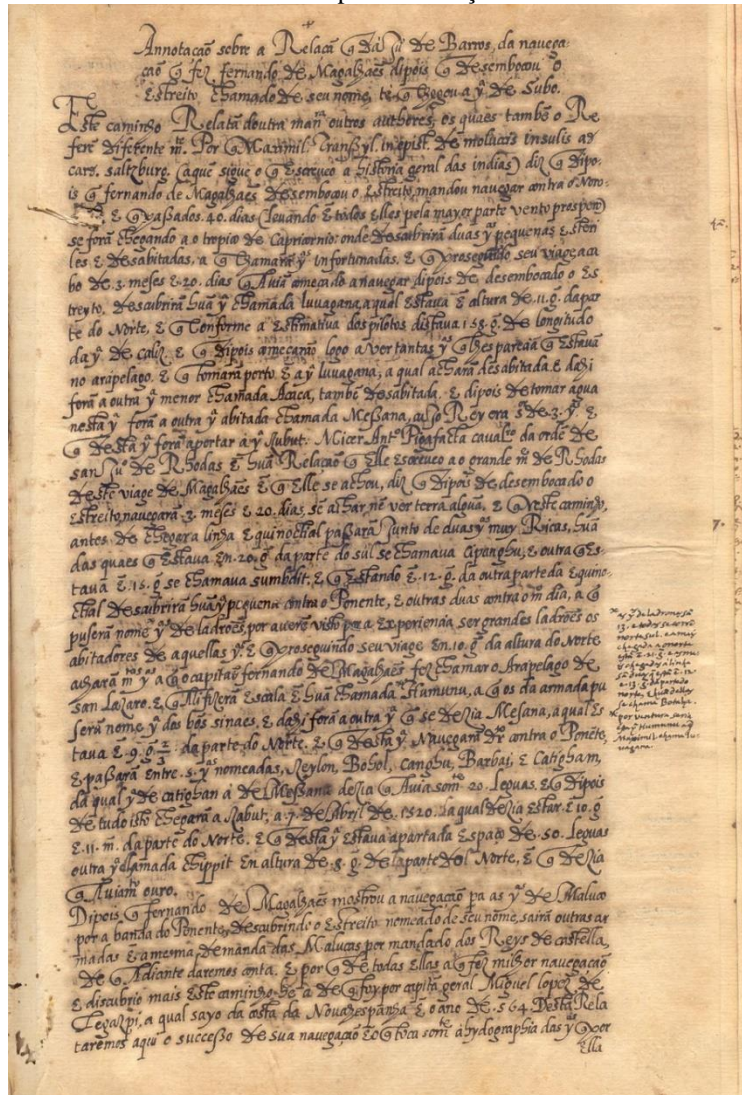 Annotacaõ sobre a Relacã q̃ dá Jú de Barros, da navega-
cão q̃ fez fernando de Magalhaẽs dipois q̃ desembocou o
Estreito chamado de seu nome, te q̃ chegou a ỹ de Subo.
Este caminho Relatã doutra man.ra outros authores, os quaes tambẽ o Re
ferẽ diferente m.te. Por q̃ Maximil. Transsyl. in epist. de moluccis insulis ad
card. saltzburg. (aque sigue o q̃ Escreveo a historia geral das indias) diz q̃ dipo-
is q̃ fernando de Magalhaẽs desembocou o Estreito, mandou navegar contra o Noro-
E q̃ passados. 40. dias (levando E todos elles pela mayor parte vento prospero)
se forã chegando a o tropico de Capricornio: onde descubrirã duas ỹs pequenas, E steri
les E desabitadas, a q̃ chamarã ỹs infortunadas. E q̃ proseguindo seu viage aca
bo de .3. meses E .20. dias q̃ Aviã começado a navegar dipois de desembocado o es
treyto. descubrirã huã ỹ chamada Iuvagana, aqual estava ẽ altura de .11. g̃. da par
te do Norte, E q̃ conforme a Estimativa dos pilotos distava 158. g̃. de longitudo
da ỹ de caliz. E q̃ dipois começarão logo a ver tantas ỹs q̃ lhes parecia q̃ Estavã
no arcipelago. E q̃ tomarã porto ẽ a ỹ Iuvagana, a qual acharã desabitada. E dahi
forã a outra ỹ menor chamada Acaca, tambẽ desabitada. E dipois de tomar agua
nesta ỹ forã a outra ỹ abitada chamada Messana, cujo Rey era s.r de .3. ỹs. E
q̃ desta ỹ forã aportar a ỹ Subut. Micer Ant.º Pigafetta cavalr.º da ordẽ de
san Jú de Rhodas ẽ huã Relacaõ q̃ Elle escreveo ao grande m.e de Rhodas
deste viage de Magalhaẽs ẽ q̃ Elle se achou, diz q̃ dipois de desembocado o
Estreito, navegarã .3. meses E .20. dias, sẽ achar, nẽ ver terra algua. E q̃ neste caminho,
antes de chegar a linha Equinoctial passarã Junto de duas ỹs muy Ricas, huã
das quaes q̃ Estava en .20. g̃. da parte do sul se chamava Cipanghu, E outra q̃ es-
tava ẽ .15. g̃ se chamava sumbdit, E q̃ Estando ẽ .12. g̃. da outra parte da Equino-
ctial descubrirã huã ỹ pequena contra o Ponente, E outras duas contra o m dia, a q̃
puserã nome ỹs de ladroẽs, por averẽ visto por a Experiencia ser grandes ladroẽs os
abitadores de aquellas ỹs. E q̃ proseguindo seu viage en .10. g̃. da altura do Norte
acharã m.tas ỹs a q̃ o capitaũ fernando de Magalhaẽs fez chamar o Arcipelago de
san Lazaro. E q̃ Ali fizerã Escala ẽ huã chamada Humunu, a q̃ os da armada pu
serã nome ỹ dos bõs sinaes, E dahi forã a outra ỹ q̃ se dezia Mesana, aqual Es
tava ẽ 9. g̃. 2/3. da parte do Norte. E q̃ desta ỹ Navegarã dr.º contra o Ponẽte,
E passarã Entre .5. ỹs nomeadas, Zeylon, Bohol, Canghu, Barbai, E Catigham,
da qual ỹ de catighan á de Messana dezia q̃ Avia som.te .20. Leguas. E q̃ Dipois
de tudo isto chegarã a Zabut, a .7. de Abryl de .1520. a qual dezia estar ẽ 10. g̃
E .11. m. da parte do Norte. E q̃ desta ỹ Estava apartada Espaço de .50. Leguas
outra ỹ llamada chippit En altura de .8. g̃. de la parte del Norte, E q̃ dezia
q̃ Avia m.to ouro.
Dipois q̃ fernando de Magalhaẽs mostrou a navegacaõ pa as ỹs de Maluco
por a banda do Ponente, descubrindo o Estreito nomeado de seu nome, sairã outras ar
madas ẽ a mesma demanda das Malucas por mandado dos Reys de castella,
de q̃ Adiante daremos conta. E por q̃ de todas Ellas a q̃ fez milhor navegacaõ
E discubrio mais Este caminho he a de q̃ foy por capitã geral Miguel lopez de
Legazpi, a qual sayo da costa da Nova espanha ẽ o ano de .564. Desta Rela
taremos aqui o successo de sua navegacaõ ẽ o q̃ toca som.te á hydographia das ỹs q̃ por
Ella
7.
ỹs de ladrones sã
13. E todas se corrẽ
norte sul. E a mais
chegada a o norte
se chama Botaha.
por ventura seria
esta ỹ Humunu a q̃
Maximil. chama Iu
vagana.